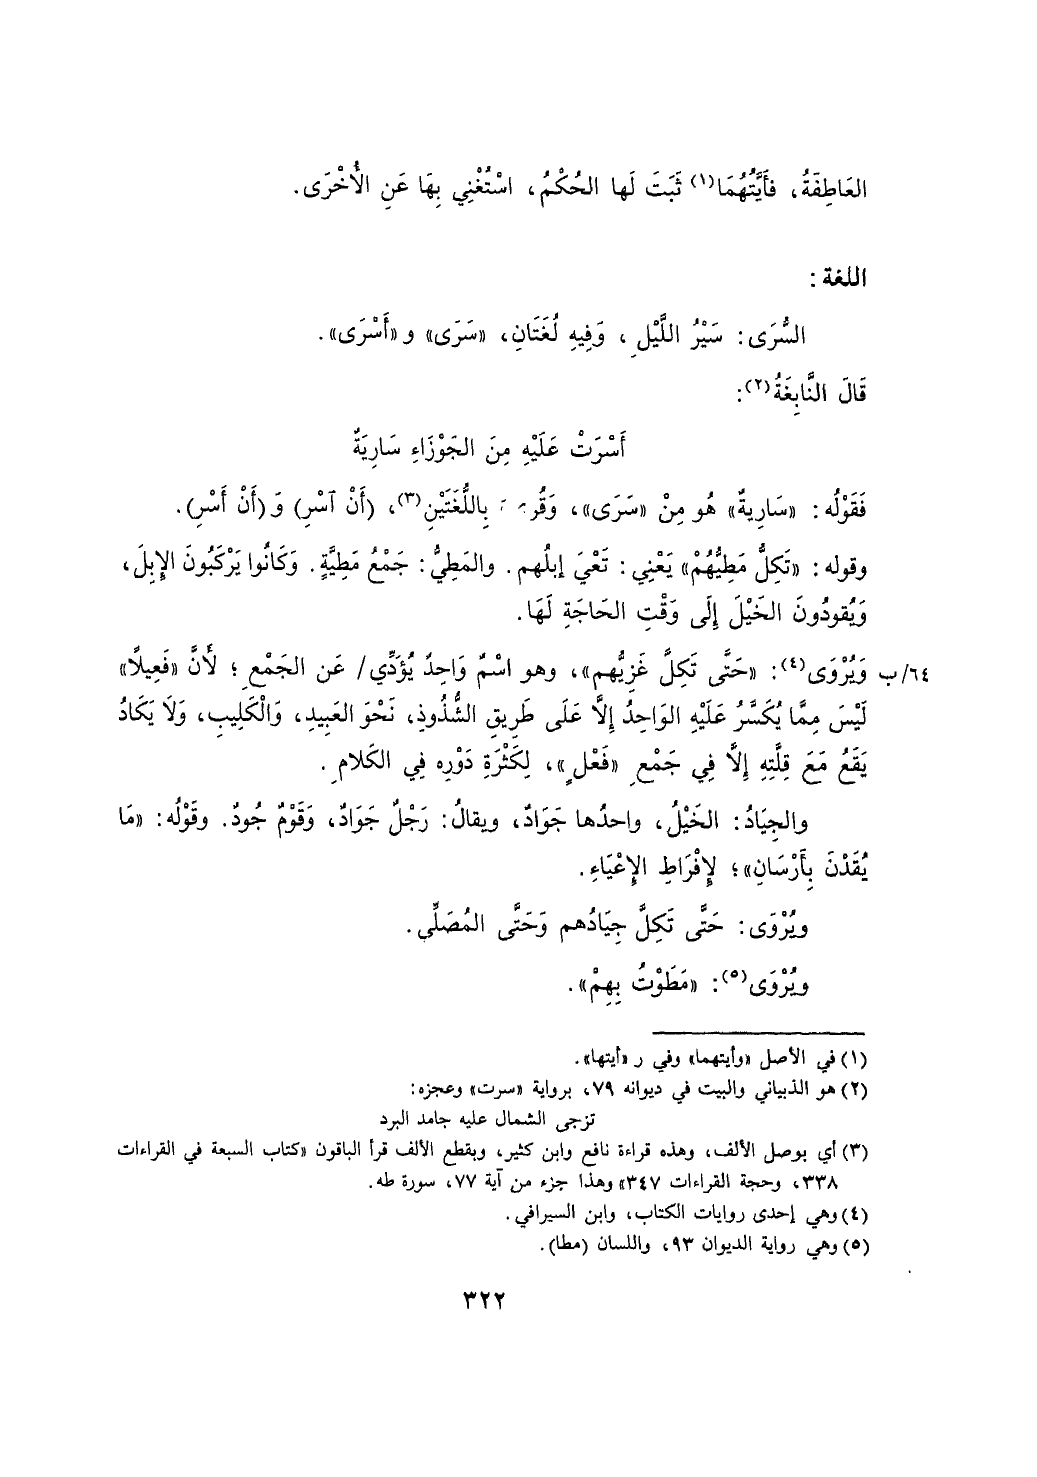 العَاطِفَةُ، فأَيَّتُهُمَا(١) ثَبَتَ لَها الحُكْمُ، اسْتُغْنِي بِهَا عَنِ الأُخْرَى.
اللغة :
السُّرَى: سَيْرُ اللَّيْلِ، وَفِيهِ لُغَتَانِ، «سَرَى» و «أَسْرَى».
قَالَ النَّابِغَةُ(٢):
أَسْرَتْ عَلَيْهِ مِنَ الجَوْزَاءِ سَارِيَةٌ
فَقَوْلُه: «سَارِيةٌ» هُو مِنْ «سَرَى»، بِاللُّغَتَيْنِ(٣)، (أَنْ آسْرِ) وَ (أَنْ أَسْرِ).
وقوله: «تَكِلُّ مَطِيُّهُمْ» يَعْنِي: تَعْيَ إبلُهم. والمَطِيُّ: جَمْعُ مَطِيَّةٍ. وَكَانُوا يَرْكَبُونَ الإِبِلَ،
وَيُقودُونَ الخَيْلَ إِلَى وَقْتِ الحَاجَةِ لَهَا.
٦٤/ب وَيُرْوَى(٤): «حَتَّى تَكِلَّ غَزِيُّهم»، وهو اسْمٌ وَاحِدٌ يُؤَدِّي/ عَن الجَمْعِ؛ لأَنَّ «فَعِيلًا»
لَيْسَ مِمَّا يُكَسَّرُ عَلَيْهِ الوَاحِدُ إِلَّا عَلَى طَرِيقِ الشُّذُوذِ، نَحْوَ العَبِيدِ، وَالْكَلِيبِ، وَلَا يَكَادُ
يَقَعُ مَعَ قِلَّتِهِ إِلَّا فِي جَمْعِ «فَعْلٍ»، لِكَثْرَةِ دَوْرِه فِي الكَلامِ.
والجِيَادُ: الخَيْلُ، واحدُها جَوَادٌ، ويقالُ: رَجُلٌ جَوَادٌ، وَقَوْمٌ جُودٌ. وقَوْلُه: «مَا
يُقَدْنَ بِأَرْسَانِ»؛ لِإِفْرَاطِ الإِعْيَاءِ.
ويُرْوَى: حَتَّى تَكِلَّ جِيَادُهم وَحَتَّى المُصَلِّى.
ويُرْوَى(٥): «مَطَوْتُ بِهِمْ».
(١) في الأصل «وأيتهما» وفي ر «أيتها».
(٢) هو الذبياني والبيت في ديوانه ٧٩، برواية «سرت» وعجزه:
تزجى الشمال عليه جامد البرد
(٣) أي بوصل الألف، وهذه قراءة نافع وابن كثير، وبقطع الألف قرأ الباقون «كتاب السبعة في القراءات
٣٣٨، وحجة القراءات ٣٤٧» وهذا جزء من آية ٧٧، سورة طه.
(٤) وهي إحدى روايات الكتاب، وابن السيرافي.
(٥) وهي رواية الديوان ٩٣، واللسان (مطا).
٣٢٢